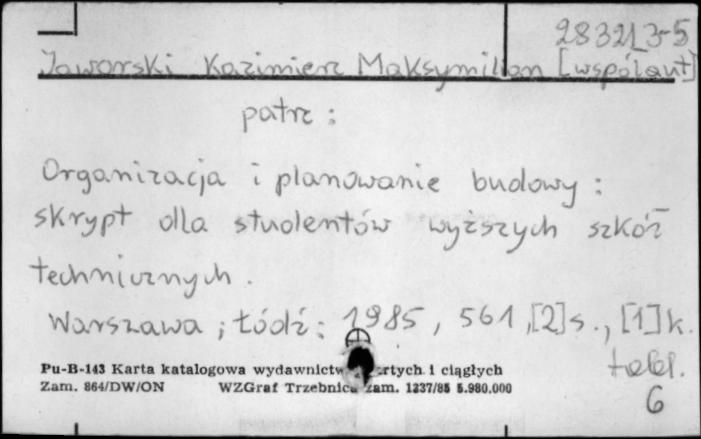 283213-5
Jaworski Kazimierz Maksymilian [współaut]
patrz :
Organizacja i planowanie budowy :
skrypt dla studentów wyższych szkół
technicznych .
Warszawa ; Łódź : 1985 , 561 ,[2]s., [1]k.
tabl.
6
Pu-B-143 Karta katalogowa wydawnictw zwartych i ciągłych
Zam. 864/DW/ON WZGraf Trzebnica zam. 1237/85 5.980.000